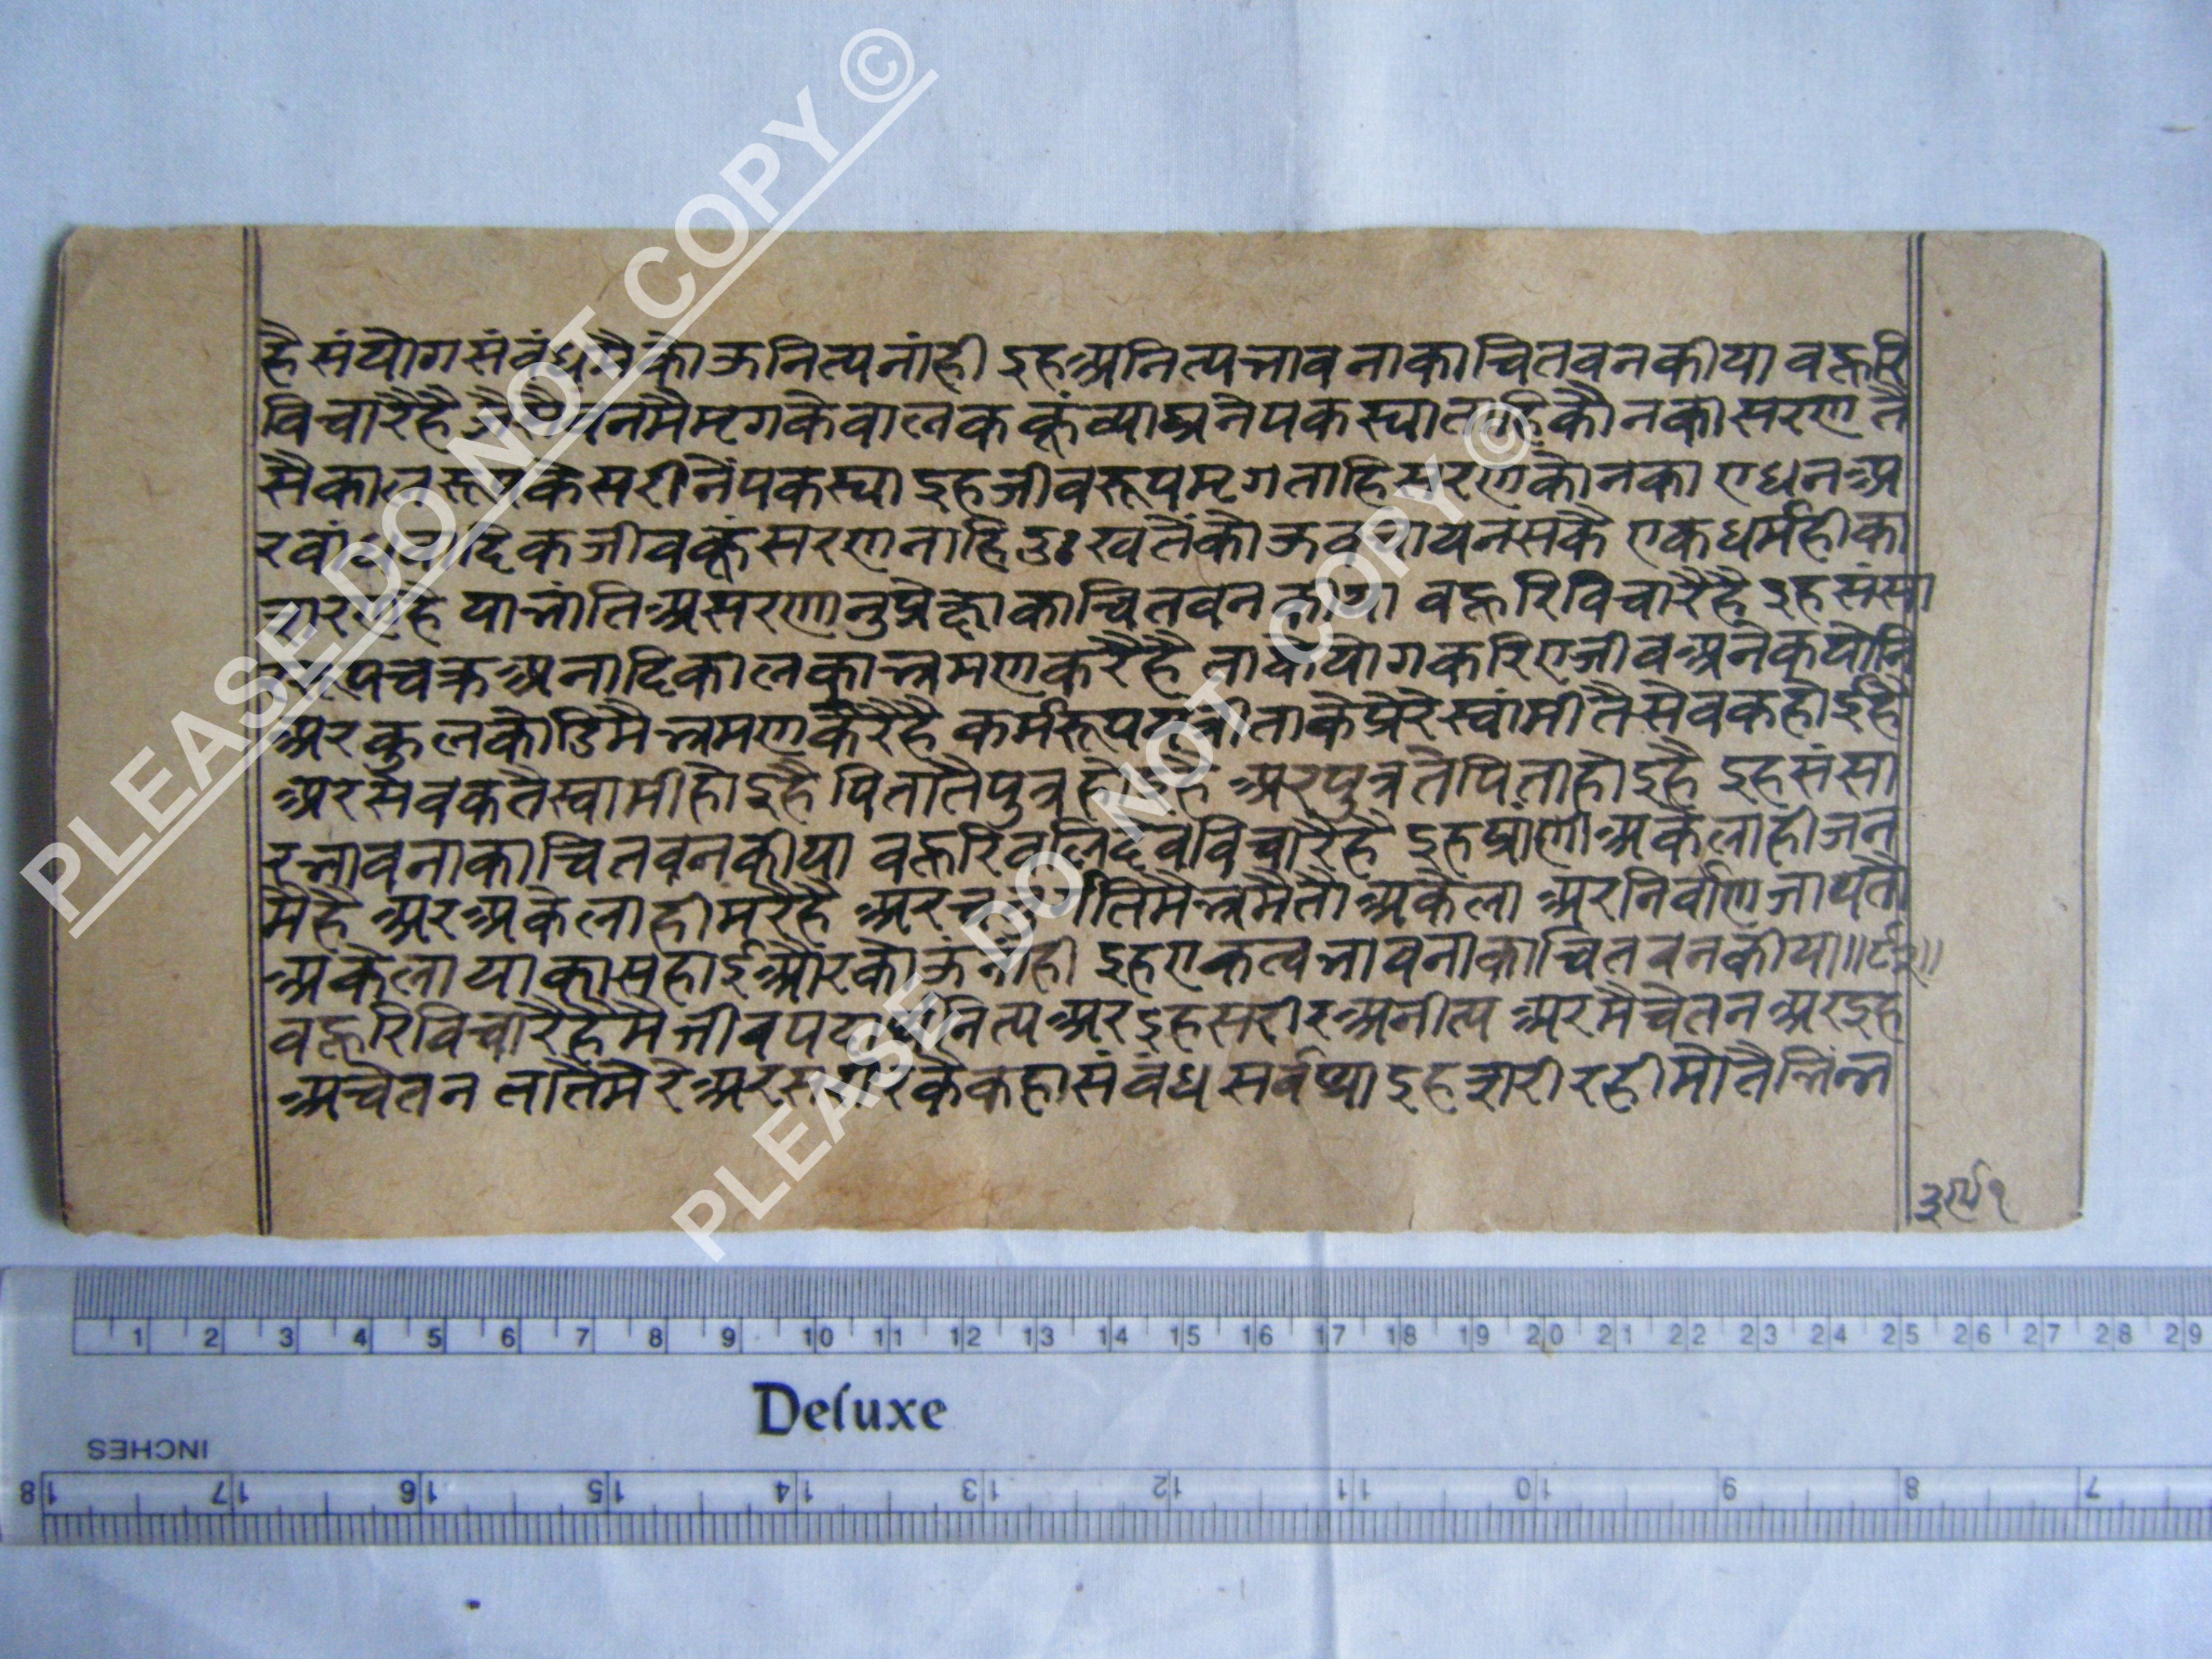 है संयोग संबंध मै कोऊ नित्य नांही इह अनित्य भावना का चिंतवन कीया बहुरि
विचारै है जैसै वन मै मृग के बालक कूं व्याघ्र नै पकस्या ताहि कौन का सरण तै
सै काल रूप केसरी नै पकस्या इह जीव रूप मृग ताहि सरण कौन का ए धन अ
र बांधवादिक जीव कूं सरण नाहि दुःख तै कोऊ बचाय न सकै एक धर्म ही का
सरण है या भांति असरणानुप्रेक्षा का चिंतवन कीया बहुरि विचारै है इह संसा
र रूप चक्र अनादि काल का भ्रमण करै है ता के योग करि ए जीव अनेक योनि
अर कुल कोडि मै भ्रमण करै है कर्म रूप यंत्री ता के प्रेरे स्वामी तै सेवक होइ है
अर सेवक तै स्वामी होइ है पिता तै पुत्र होइ है अर पुत्र तै पिता होइ है इह संसा
र भावना का चिंतवन कीया बहुरि बलिदेव विचारै है इह प्राणी अकेला ही जन
मै है अर अकेला ही मरै है अर चतुर्गति मै भ्रमै तौ अकेला अर निर्वाण जाय तौ
अकेला या का सहाई और कोऊ नांही इह एकत्व भावना का चिंतवन कीया॥
बहुरि विचारै है मै जीव पदार्थ नित्य अर इह सरीर अनीत्य अर मै चेतन अर इह
अचेतन तातै मेरै अर सरीर कै कहा संबंध सर्वथा इह शरीर ही मो तै भिंन्न
PLEASE DO NOT COPY ©
PLEASE DO NOT COPY ©
1 2 3 4 5 6 7 8 9 10 11 12 13 14 15 16 17 18 19 20 21 22 23 24 25 26 27 28 29
Deluxe
INCHES
18 17 16 15 14 13 12 11 10 9 8 7